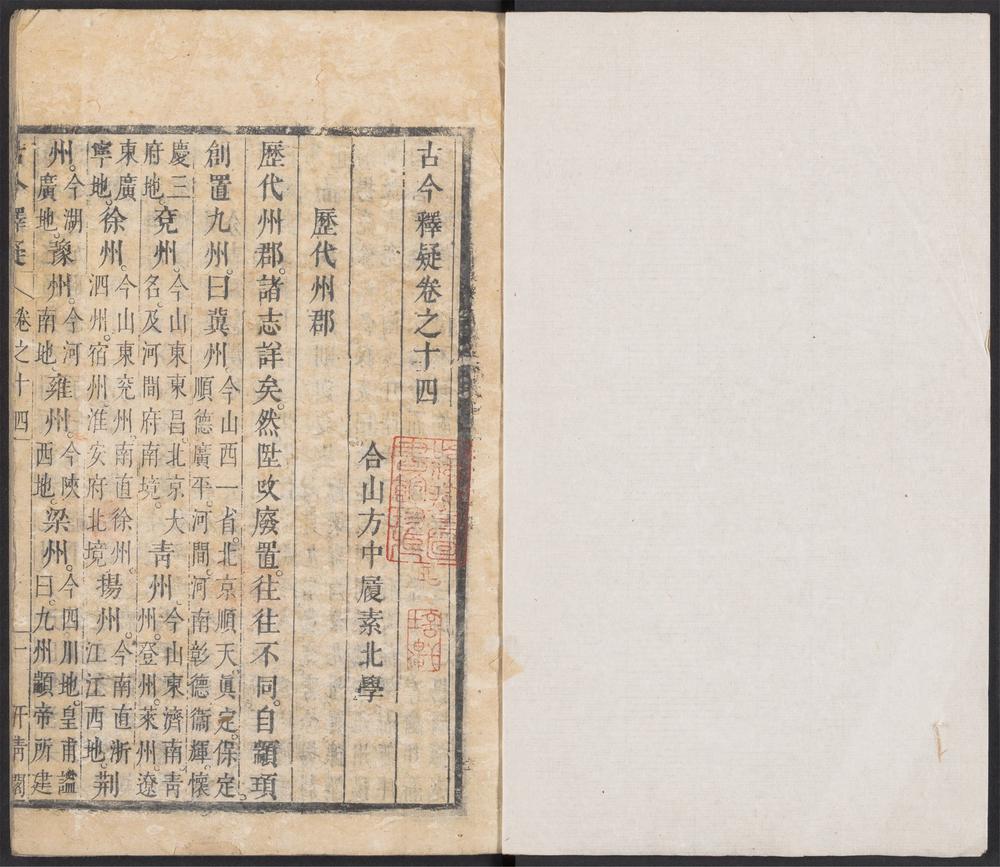 古今釋疑卷之十四
合山方中履素北學
歷代州郡
歷代州郡。諸志詳矣。然陞改廢置。往往不同。自顓頊
創置九州。曰冀州。今山西一省。北京順天。眞定。保定。
順德廣平。河間。河南彰德衞輝。懷
慶三
府地。兗州。今山東東昌。北京大
名。及河間府南境。青州。今山東濟南青
州。登州。萊州。遼
東廣
寧地。徐州。今山東兗州。南直徐州。
泗州。宿州。淮安府北境。揚州。今南直浙
江江西地。荆
州。今湖
廣地。豫州。今河
南地。雍州。今陝
西地。梁州。今四川地。皇甫謐
曰。九州顓帝所建
古今釋疑 卷之十四 一 汗青閣